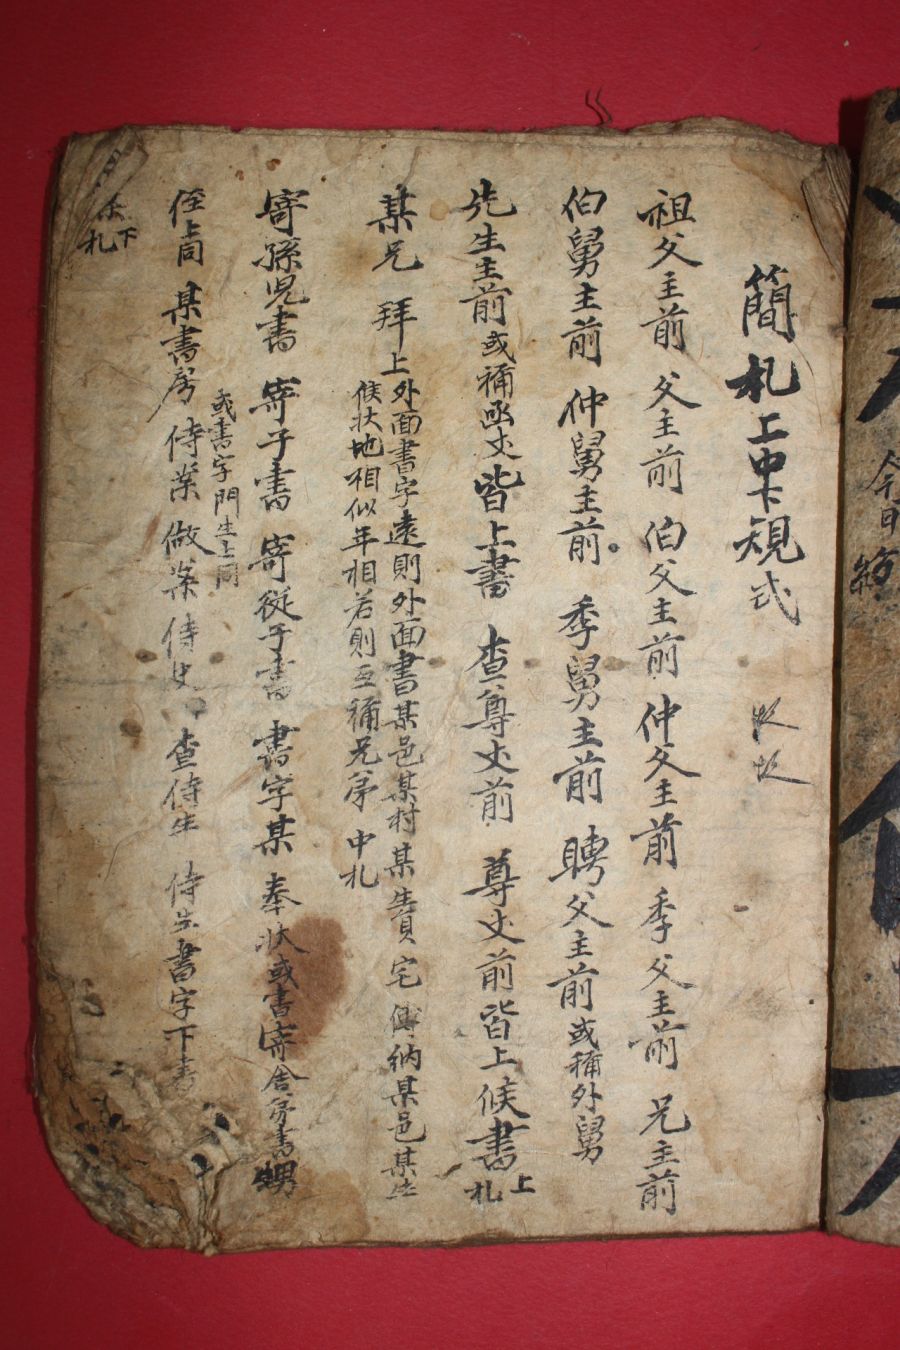 簡札上中下規式
祖父主前 父主前 伯父主前 仲父主前 季父主前 兄主前
伯舅主前 仲舅主前 季舅主前 聘父主前 或稱外舅
先生主前 或稱函丈 皆上書 查尊丈前 尊丈前 皆上候書 上札
某兄 拜上 外面書字遠則外面書某邑某村某生員宅 傳納某邑某生
候狀地相似年相若則互稱兄弟 中札
寄孫児書 寄子書 寄從子書 書字某 奉狀或書寄舍弟書 甥
或書字門生上同
侄上同 某書房 侍案 做案 侍史 查侍生 侍生書字下書
下札
今日終